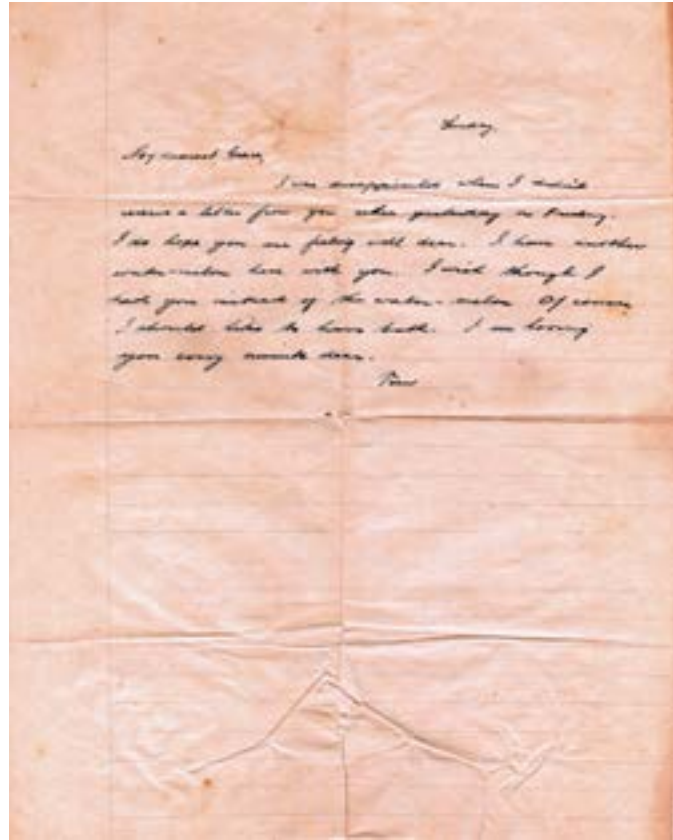 Sunday
My
I was disappointed when I didn't
a letter from you either yesterday or Sunday.
I do hope you are feeling well dear. I have another
water-melon here with you. I wish though I
had you instead of the water-melon. Of course,
I should like to have both. I am loving
you very much dear.